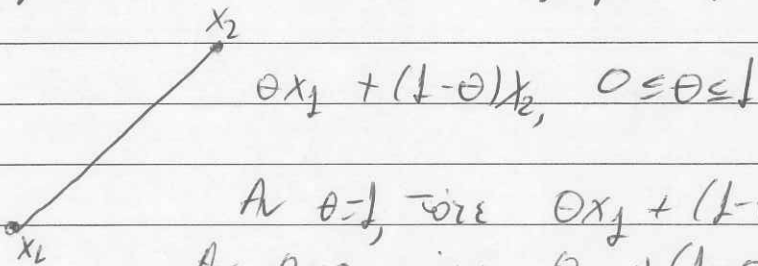 x₂
θx₁ + (1-θ)x₂, 0 ≤ θ ≤ 1
Αν θ=1, τότε θx₁ + (1-
x₁